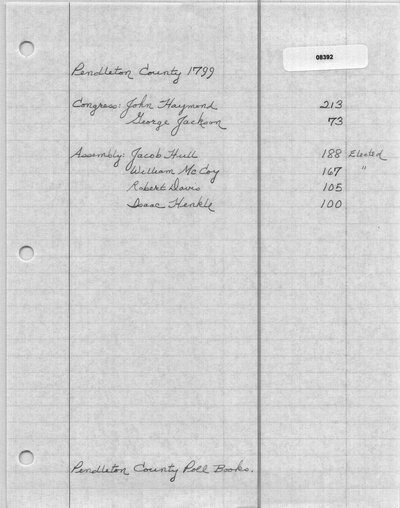 08392
Pendleton County 1799
Congress: John Haymond 213
George Jackson 73
Assembly: Jacob Hull 188 Elected
William McCoy 167 "
Robert Davis 105
Isaac Henkle 100
Pendleton County Poll Books.